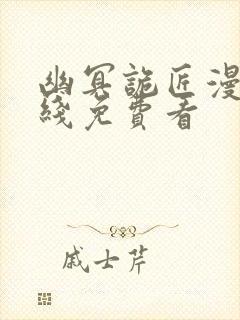 幽冥詭匠漫
綫免費看
戚士芹